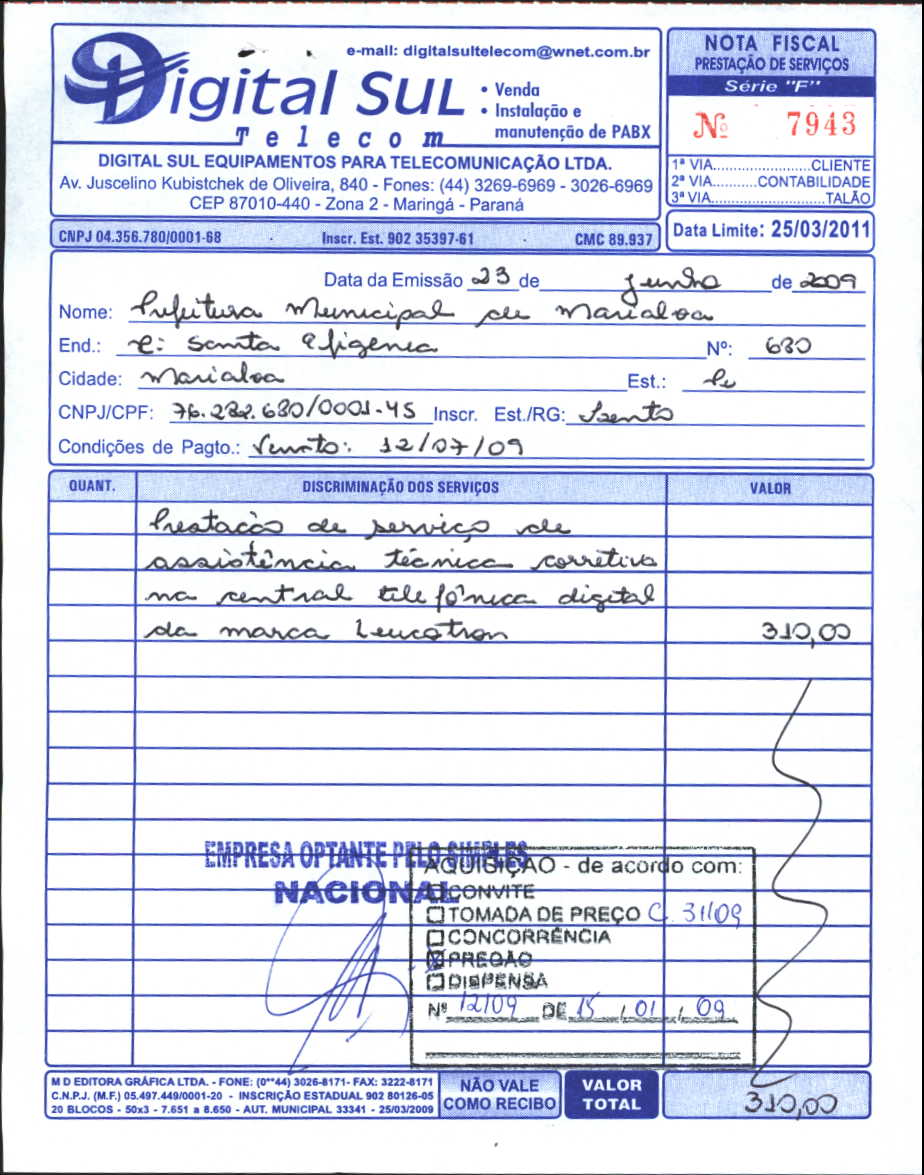 e-mail: digitalsultelecom@wnet.com.br
Digital Sul
Telecom
• Venda
• Instalação e
manutenção de PABX
DIGITAL SUL EQUIPAMENTOS PARA TELECOMUNICAÇÃO LTDA.
Av. Juscelino Kubistchek de Oliveira, 840 - Fones: (44) 3269-6969 - 3026-6969
CEP 87010-440 - Zona 2 - Maringá - Paraná
NOTA FISCAL
PRESTAÇÃO DE SERVIÇOS
Série "F"
Nº 7943
1ª VIA.....................CLIENTE
2ª VIA..........CONTABILIDADE
3ª VIA..........................TALÃO
CNPJ 04.356.780/0001-68 Inscr. Est. 902 35397-61 CMC 89.937
Data Limite: 25/03/2011
Data da Emissão 23 de junho de 2009
Nome: Prefeitura Municipal de Marialva
End.: R: Santa Efigenia Nº: 680
Cidade: Marialva Est.: Pr
CNPJ/CPF: 76.282.680/0001-45 Inscr. Est./RG: Isento
Condições de Pagto.: Vencto: 12/07/09
QUANT. DISCRIMINAÇÃO DOS SERVIÇOS VALOR
Prestação de serviço de
assistência técnica corretiva
na central telefônica digital
da marca Leucotron 310,00
EMPRESA OPTANTE PELO SIMPLES
NACIONAL
AQUISIÇÃO - de acordo com:
CONVITE
TOMADA DE PREÇO C. 31/09
CONCORRÊNCIA
PREGÃO
DISPENSA
Nº 12/09 DE 15 / 01 / 09
M D EDITORA GRÁFICA LTDA. - FONE: (0**44) 3026-8171- FAX: 3222-8171
C.N.P.J. (M.F.) 05.497.449/0001-20 - INSCRIÇÃO ESTADUAL 902 80126-05
20 BLOCOS - 50x3 - 7.651 a 8.650 - AUT. MUNICIPAL 33341 - 25/03/2009
NÃO VALE
COMO RECIBO
VALOR
TOTAL
310,00